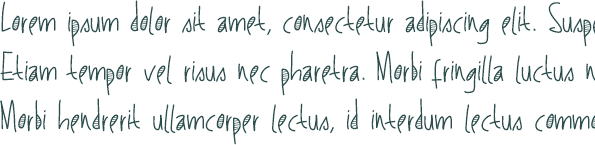 Lorem ipsum dolor sit amet, consectetur adipiscing elit. Susp
Etiam tempor vel risus nec pharetra. Morbi fringilla luctus n
Morbi hendrerit ullamcorper lectus, id interdum lectus comm